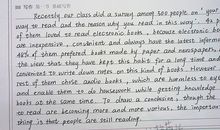 Recently our class did a survey among 500 people on "your
way to read and the reason why you read in this way". 
of them loved to read electronic books, because electronic bo
are inexpensive, convenient and always have the latest inform
45% of them preferred books made by paper and newspapers,
the view that they have kept this habit for a long time and
convenient to write down notes on this kind of books. However,
rest of them chose audio books, which are harmless to eyes
and enable them to do housework while getting knowledge
books at the same time. To draw a conclusion, though the
to read are becoming more and more various, the important
thing is that people are still reading.